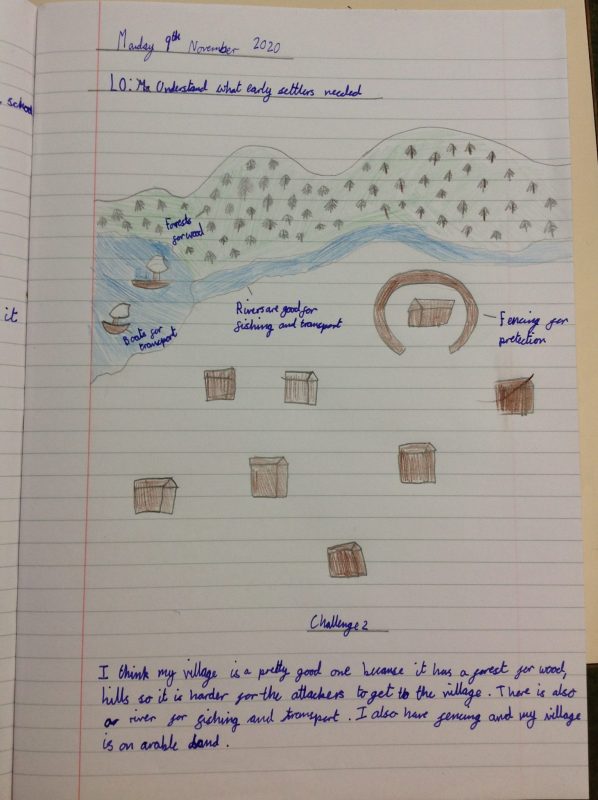 Monday 9th November 2020
LO: To Understand what early settlers needed
school
it
Forests
for wood
Boats for
transport
Rivers are good for
fishing and transport
Fencing for
protection
Challenge 2
I think my village is a pretty good one because it has a forest for wood,
hills so it is harder for the attackers to get to the village. There is also
a river for fishing and transport. I also have fencing and my village
is on arable land.